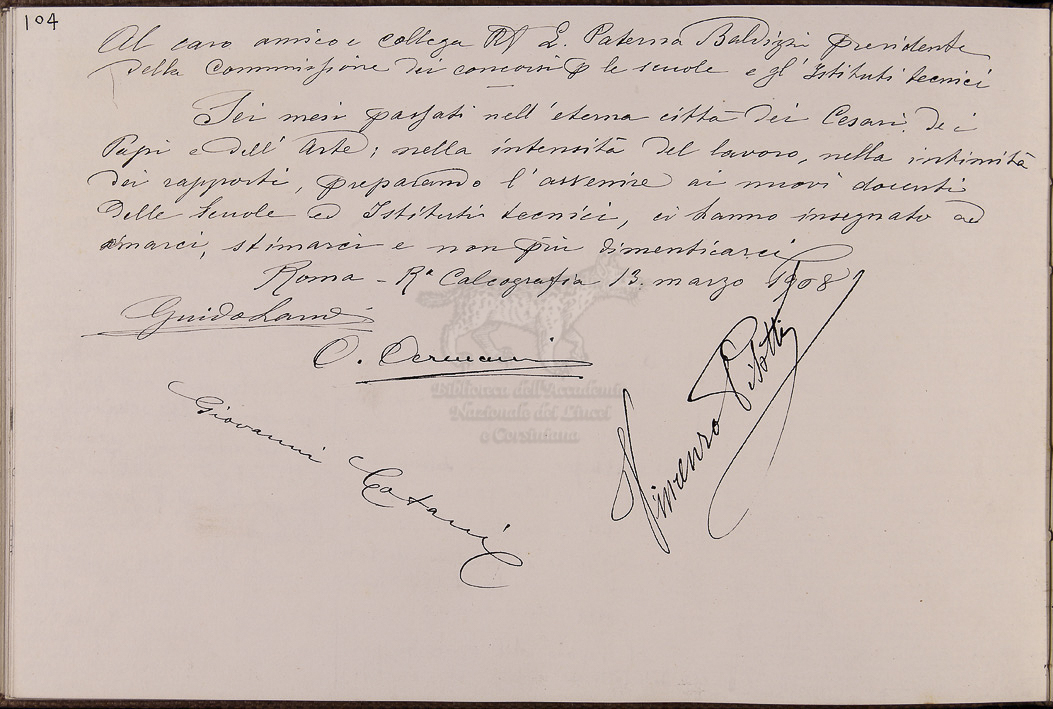 104
Al caro amico e collega L. Paterna Baldizzi presidente
della Commissione dei concorsi p le scuole e gl' Istituti tecnici
Sei mesi passati nell' eterna città dei Cesari, dei
Papi e dell' Arte; nella intensità del lavoro, nella intimità
dei rapporti, preparando l'avvenire ai nuovi docenti
delle Scuole ed Istituti tecnici, ci hanno insegnato ad
amarci, stimarci e non più dimenticarci
Roma - Rª Calcografia 13. marzo 1908
Guido Landi
Giovanni
Vincenzo Pilotti
Biblioteca dell'Accademia
Nazionale dei Lincei
e Corsiniana